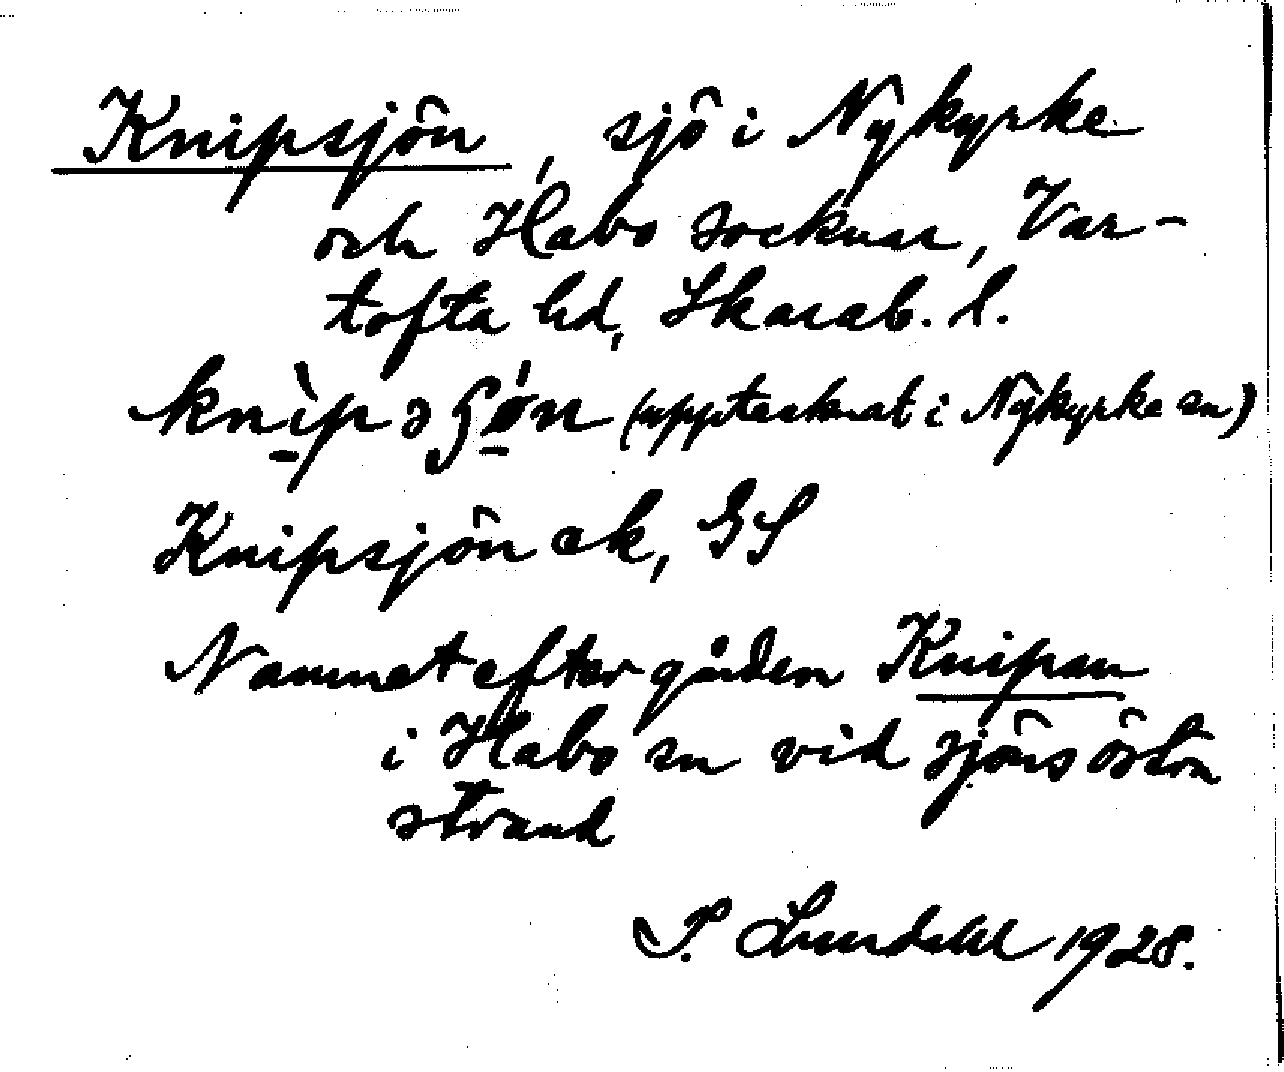 Knipsjön, sjö i Nykyrke
och Habo socknar, Var-
tofta hd, Skarab. l.
(upptecknat i Nykyrke sn)
Knipsjön ek, GS
Namnet efter gården Knipan
i Habo sn vid sjöns östra
strand
I. Lundahl 1928.